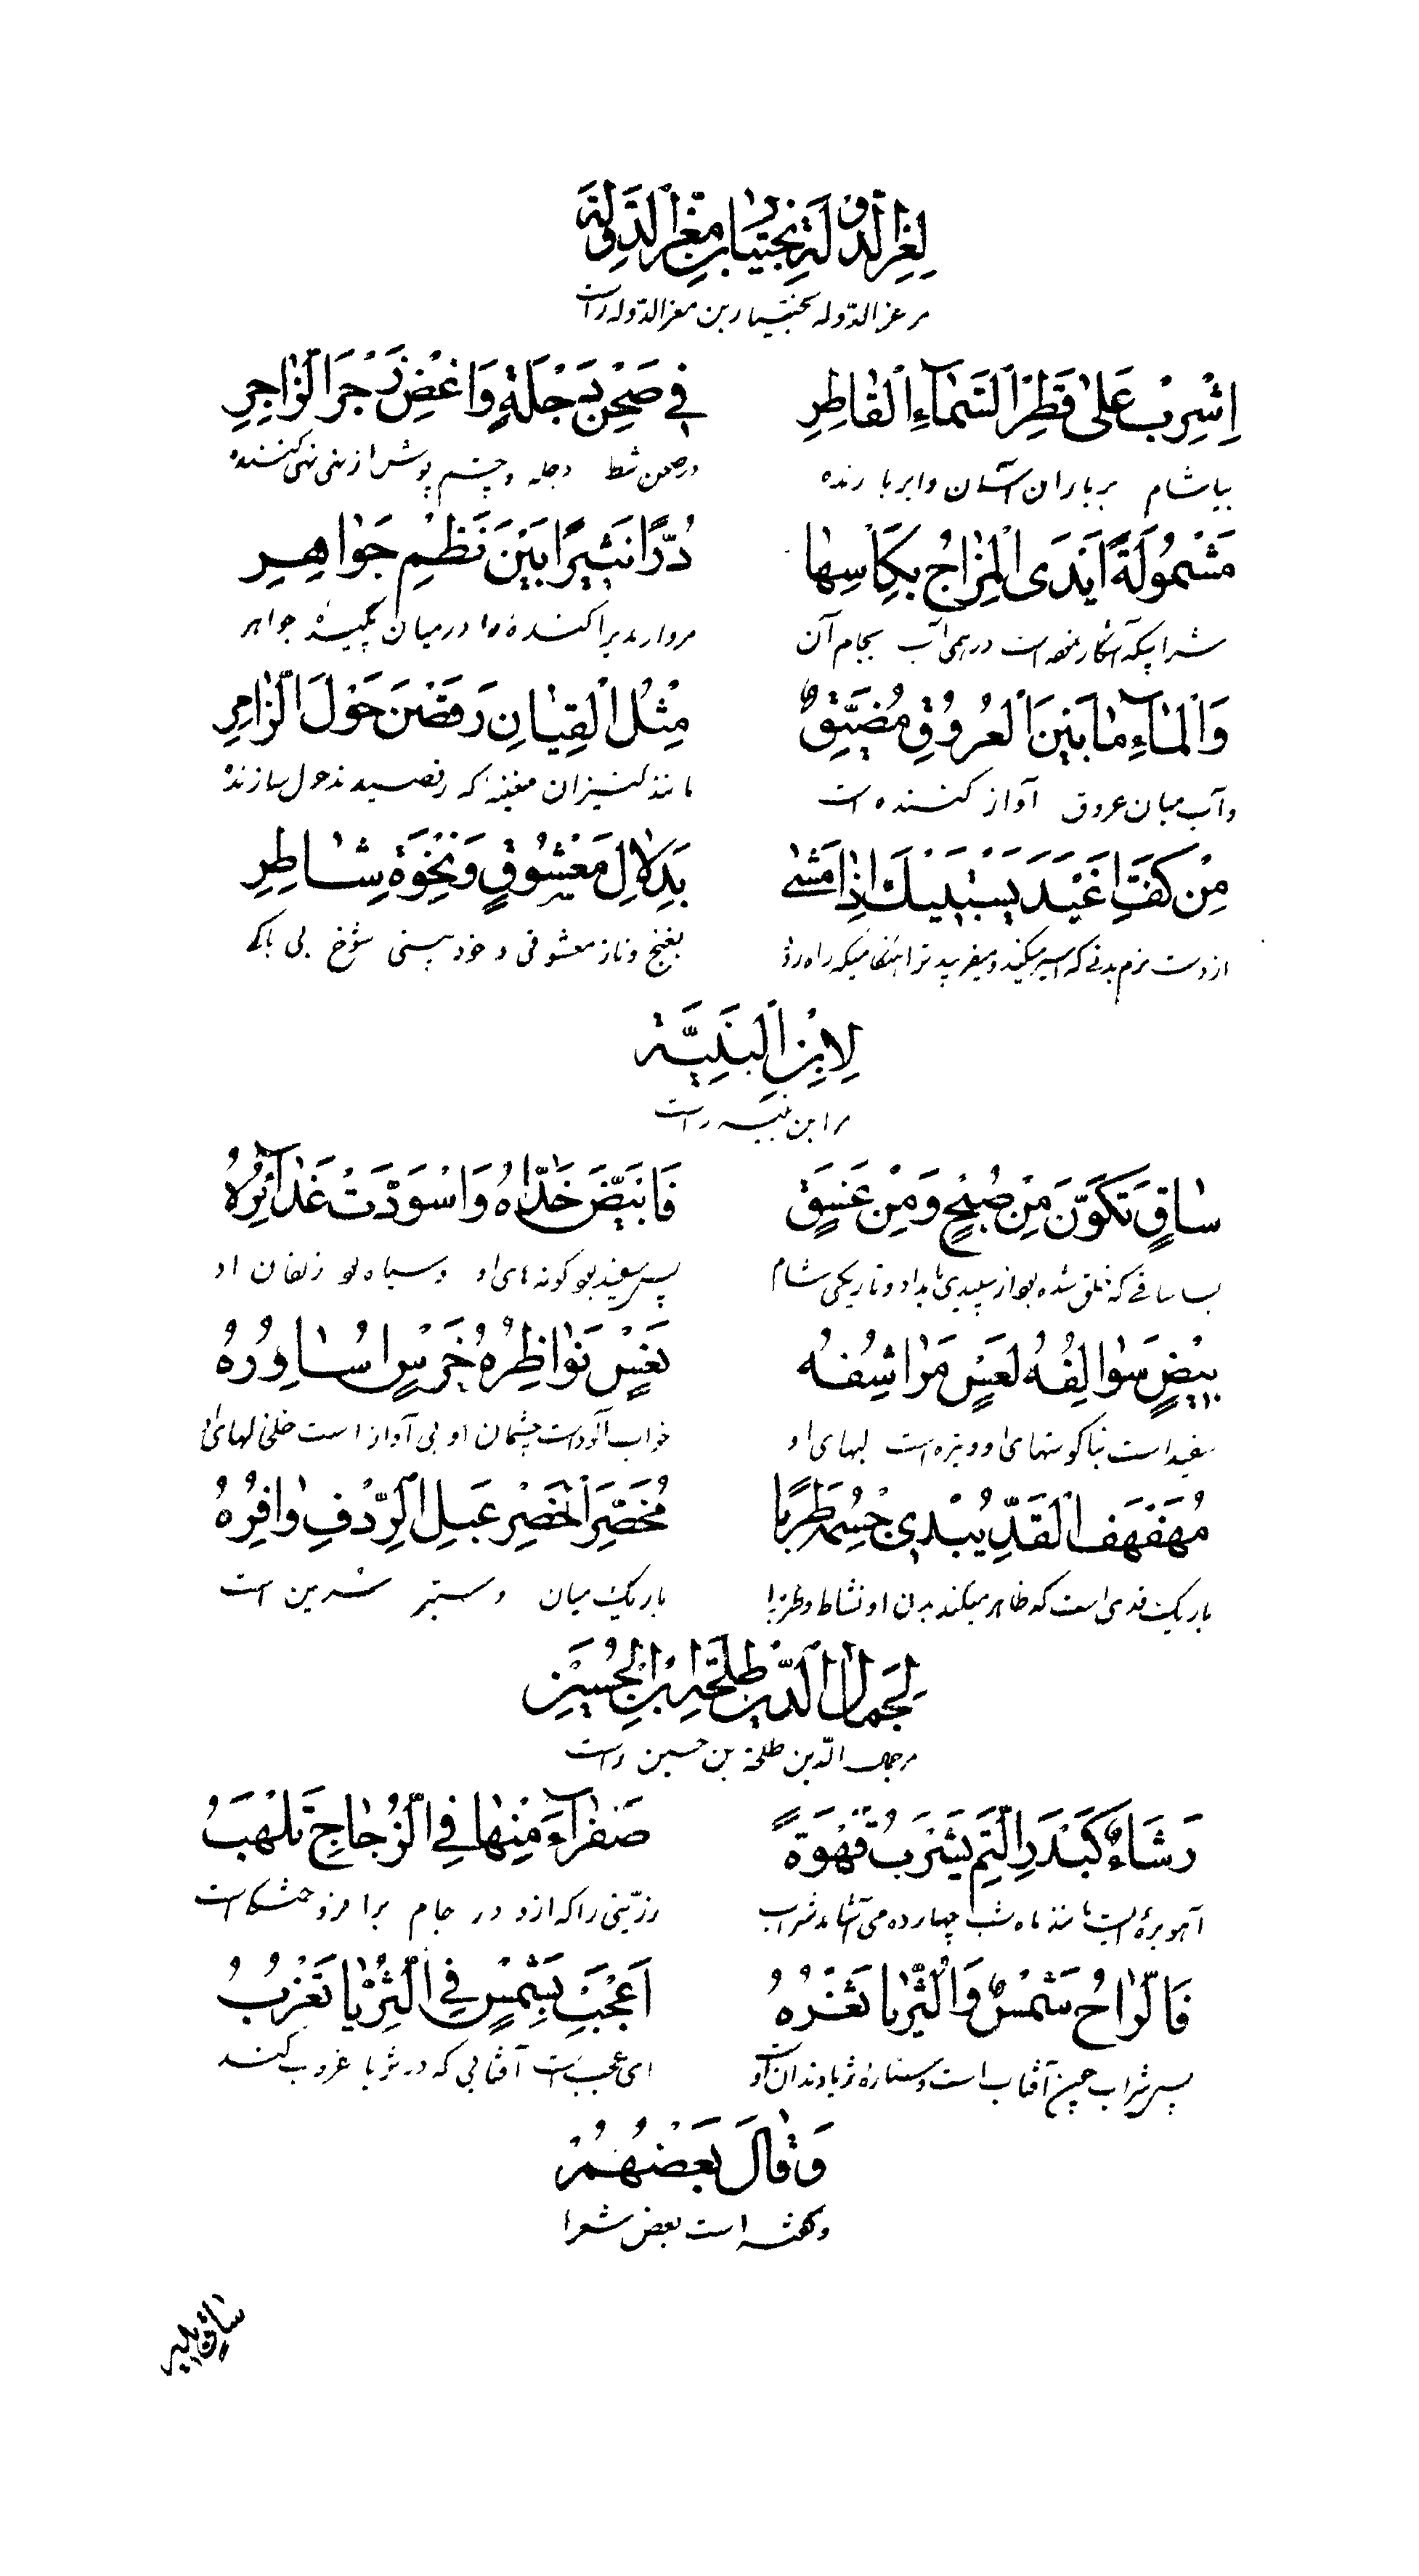 لِعِزِّ الدَّوْلَةِ بَخْتِيَارِ بْنِ مُعِزِّ الدَّوْلَةِ
مر عز الدّوله بختیار بن معز الدّوله راست
اِشْرِبْ عَلىٰ قَطْرِ السَّمٰآءِ الْقٰاطِرِ فِي صَحْنِ دَجْلَةٍ وَاغْضِ زَجْرَ الزّٰاجِرِ
بیاشام بر باران آسمان و ابر بارنده در صحن شط دجله و چشم پوش از نهی نهی کننده
مَشْمُولَةً اَبْدَى الْمِزٰاجُ بِكَاْسِهٰا دُرًّا نَثِيرًا بَيْنَ نَظْمِ جَوٰاهِرِ
شرابیکه آشکار نموده است درهمی آب بجام آن مروارید پراکنده را در میان جواهر
وَالْمٰآءِ مٰا بَيْنَ الْعُرُوقِ مُضَيَّقٌ مِثْلُ الْقِيٰانِ رَقَصْنَ حَوْلَ الزّٰامِرِ
و آب میان عروق آواز کننده است مانند کنیزان مغنیه که رقصیدند حول سازنده
مِنْ كَفِّ اَغْيَدَ يَسْتَبِيكَ اِذٰا مَشىٰ بِدَلٰالِ مَعْشُوقٍ وَنَخْوَةِ شٰاطِرِ
از دست نرم بدنی که اسیر میکند و میفریبد ترا هنگامیکه راه رود بغنج و ناز معشوقی و خود بینی شوخ بی باکی
لِابْنِ النَّبِيَّةِ
مر ابن نبیه راست
سٰاقٍ تَكَوَّنَ مِنْ صُبْحٍ وَمِنْ غَسَقٍ فَابْيَضَّ خَدّٰاهُ وَاسْوَدَّتْ غَدٰآئِرُهُ
بسا ساقی که خلق شده بود از سپیدی بامداد و تاریکی شام پس سفید بود گونه های او و سیاه بود زلفان او
بِيْضٍ سَوٰالِفُهُ لَعَسٍ مَرٰاشِفُهُ نَعَسٍ نَوٰاظِرُهُ خَرَسٍ اَسٰاوِرُهُ
سفید است بناگوشهای او و است لبهای او خواب آلود است چشمان او بی آواز است خلخالهای
مُهَفْهَفُ الْقَدِّ يُبْدِي جِسْمُهُ طَرَبًا مُخَصَّرُ الْخَصْرِ عَبْلُ الرِّدْفِ وٰافِرُهُ
باریک قدی است که ظاهر میکند بدن او نشاط و طرب را باریک میان و ستبر سرین است
لِجَمٰالِ الدّينِ طَلْحَةِ ابْنِ الْحُسَيْنِ
مر جمال الدّین طلحة بن حسین راست
رَشَاءٌ كَبَدْرِ التِّمِّ يَشْرَبُ قَهْوَةً صَفْرٰآءَ مِنْهٰا فِي الزُّجٰاجِ تَلَهُّبُ
آهو بره ایست مانند ماه شب چهارده می آشامد شراب زرّینی را که ازو در جام برافروختنی است
فَالرّٰاحُ شَمْسٌ وَالثُّرَيّٰا ثَغْرُهُ اَعْجِبْ بِشَمْسٍ فِي الثُّرَيّٰا تَغْرُبُ
پس شراب چون آفتاب است و ستاره ثریا دندان او ای عجب است آفتابی که در ثریا غروب کند
وَقٰالَ بَعْضُهُمْ
و گفته است بعض شعرا